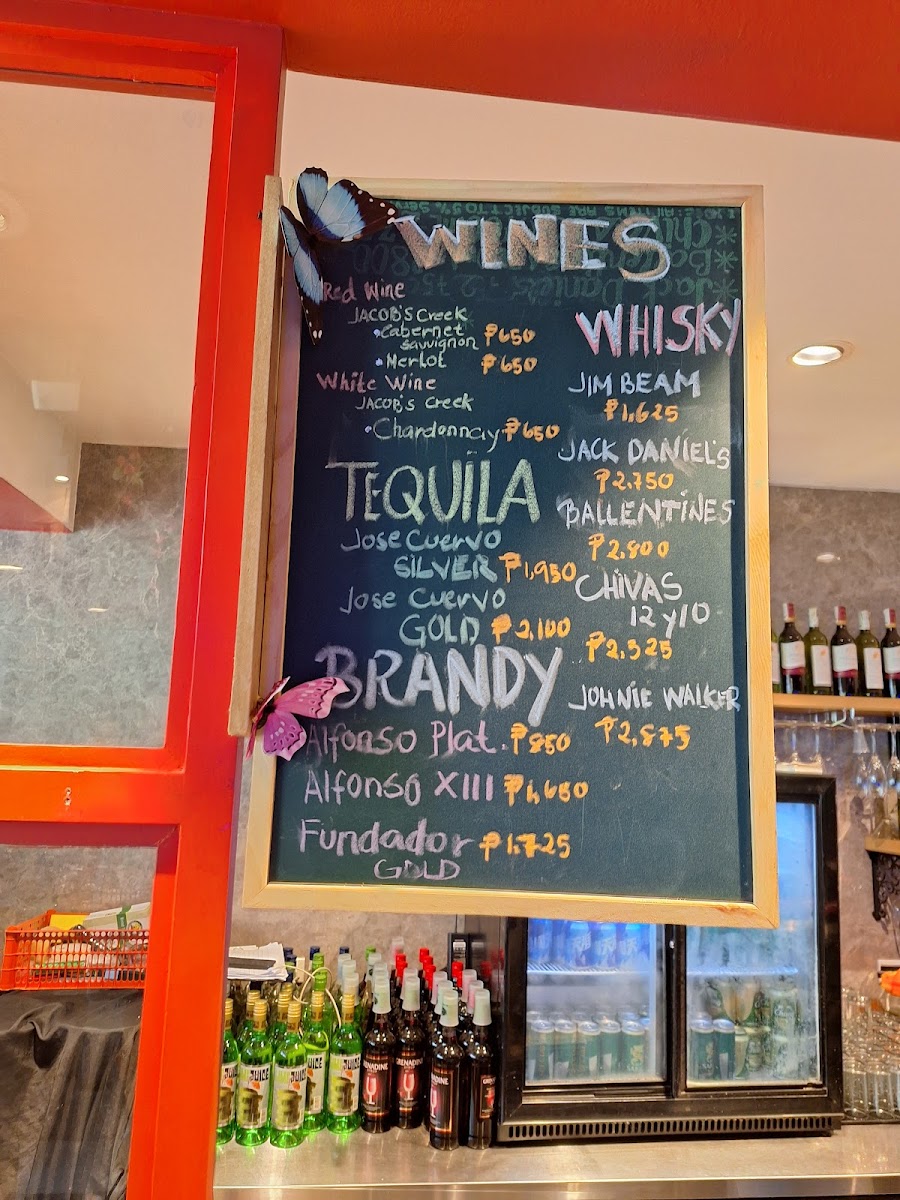 WINES
Red Wine
JACOB'S Creek
•Cabernet
Sauvignon ₱650
•Merlot ₱650
White Wine
JACOB'S Creek
•Chardonnay ₱650
TEQUILA
Jose Cuervo
SILVER ₱1,950
Jose Cuervo
GOLD ₱2,100
BRANDY
Alfonso Plat. ₱850
Alfonso XIII ₱1,650
Fundador ₱1,725
GOLD
WHISKY
JIM BEAM
₱1,625
JACK DANiEL'S
₱2,750
BALLENTiNES
₱2,800
CHiVAS
12 y/O
₱2,325
JOHNiE WALKER
₱2,875
JUICE
JUICE
JUICE
JUICE
GRENADINE
GRENADINE